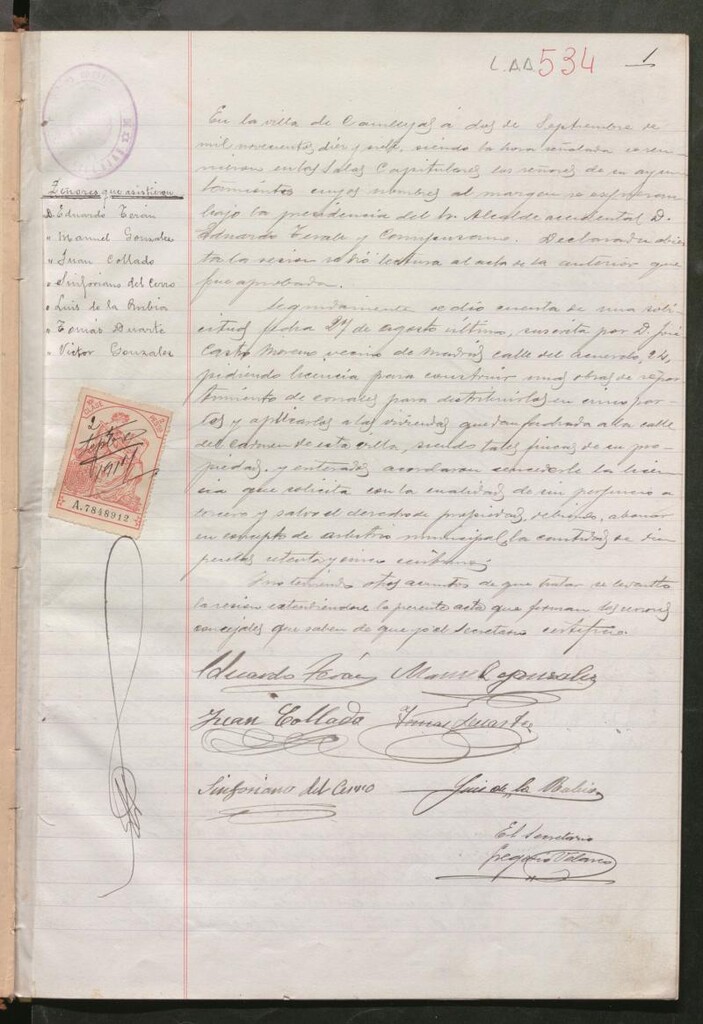 L.AA 534 1
Señores que asistieron
D. Eduardo Terán
" Manuel Gonzalez
" Juan Collado
" Sinforiano del Cerro
" Luis de la Rubia
" Tomás Duarte
" Victor Gonzalez
2
Septbre
1917
A.7848912
En la villa de Canillejas á dos de Septiembre de
mil novecientos diez y siete, siendo la hora señalada se reu-
nieron en las Salas Capitulares los señores de su ayun-
tamiento cuyos nombres al margen se expresan
bajo la presidencia del Sr. Alcalde accidental D.
Eduardo Terán y. Declarada abier-
ta la sesion se dió lectura al acta de la anterior que
fue aprobada.
Seguidamente se dio cuenta de una soli-
citud fecha 27 de agosto ultimo, suscrita por D. José
Castro Moreno vecino de Madrid calle del Acuerdo, 24,
pidiendo licencia para construir unas obras de repar-
timiento de corrales para distribuirlos en cinco par-
tes y aplicarlos a las viviendas que dan fachada a la calle
del Carmen de esta villa, siendo tales fincas de su pro-
piedad, y enterados acordaron concederle la licen-
cia que solicita con la cualidad de sin perjuicio a
tercero y salvo el derecho de propiedad, debiendo, abonar
en concepto de arbitrio municipal, la cantidad de diez
pesetas setenta y cinco centimos.
Y no teniendo otros asuntos de que tratar se levantó
la sesion extendiendose la presente acta que firman los señores
concejales que saben de que yo el Secretario certifico.
Eduardo Terán Manuel Gonzalez
Juan Collado Tomas Duarte
Sinforiano del Cerro Luis de la Rubia
El Secretario
Gregorio Velasco